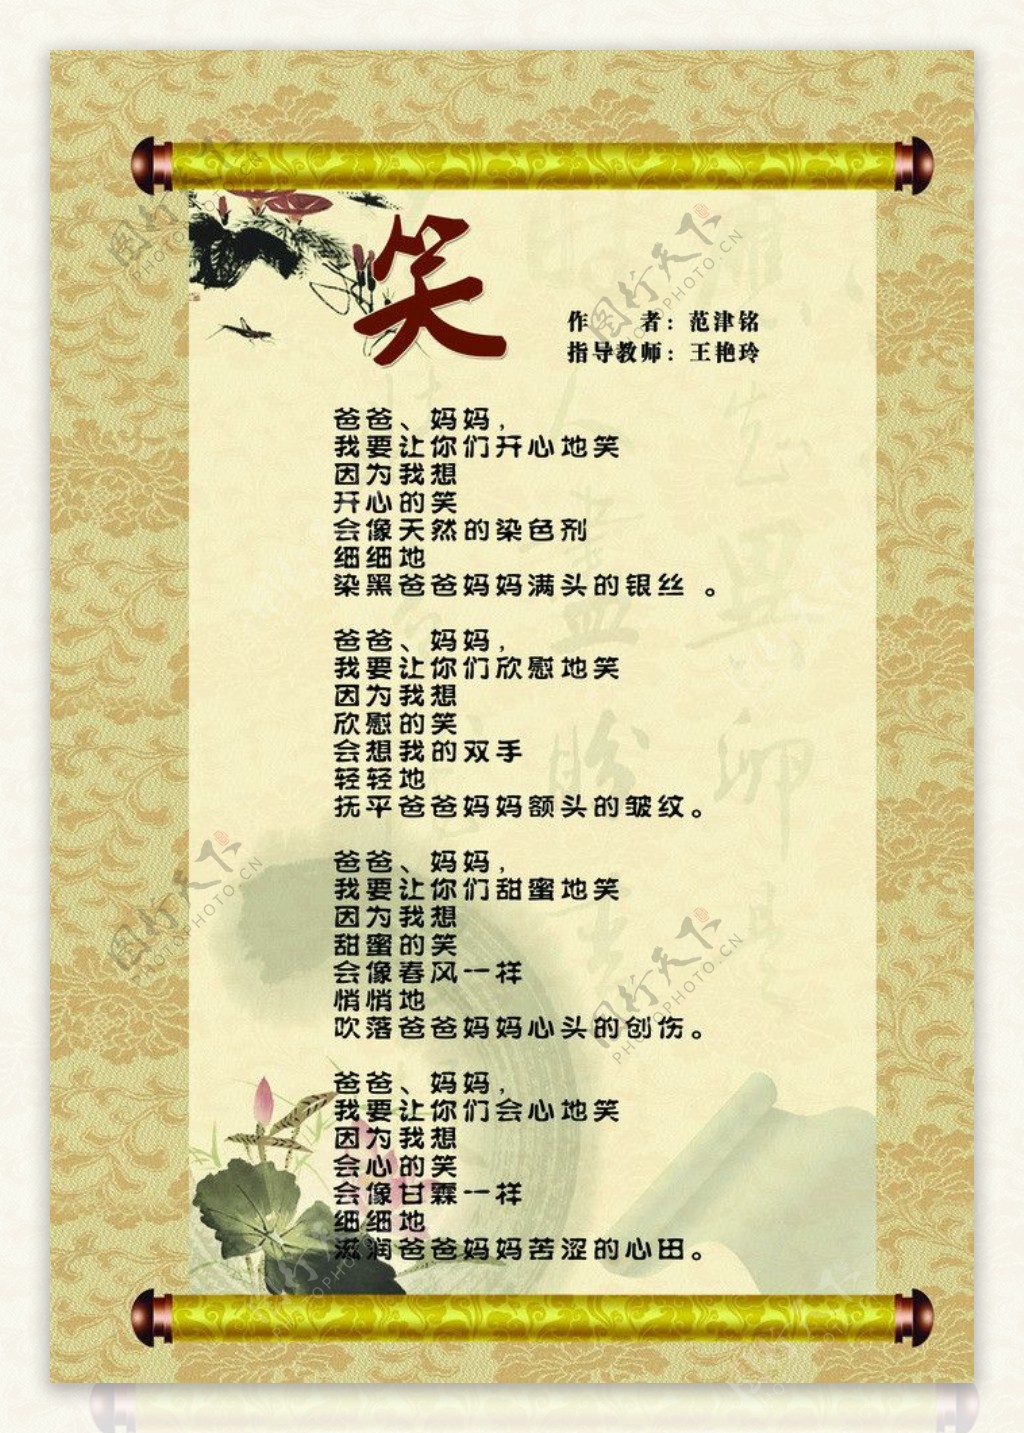 笑
作　　者：范津铭
指导教师：王艳玲
爸爸、妈妈，
我要让你们开心地笑
因为我想
开心的笑
会像天然的染色剂
细细地
染黑爸爸妈妈满头的银丝 。
爸爸、妈妈，
我要让你们欣慰地笑
因为我想
欣慰的笑
会想我的双手
轻轻地
抚平爸爸妈妈额头的皱纹。
爸爸、妈妈，
我要让你们甜蜜地笑
因为我想
甜蜜的笑
会像春风一样
悄悄地
吹落爸爸妈妈心头的创伤。
爸爸、妈妈，
我要让你们会心地笑
因为我想
会心的笑
会像甘霖一样
细细地
滋润爸爸妈妈苦涩的心田。
图行天下
PHOTOPHOTO.CN